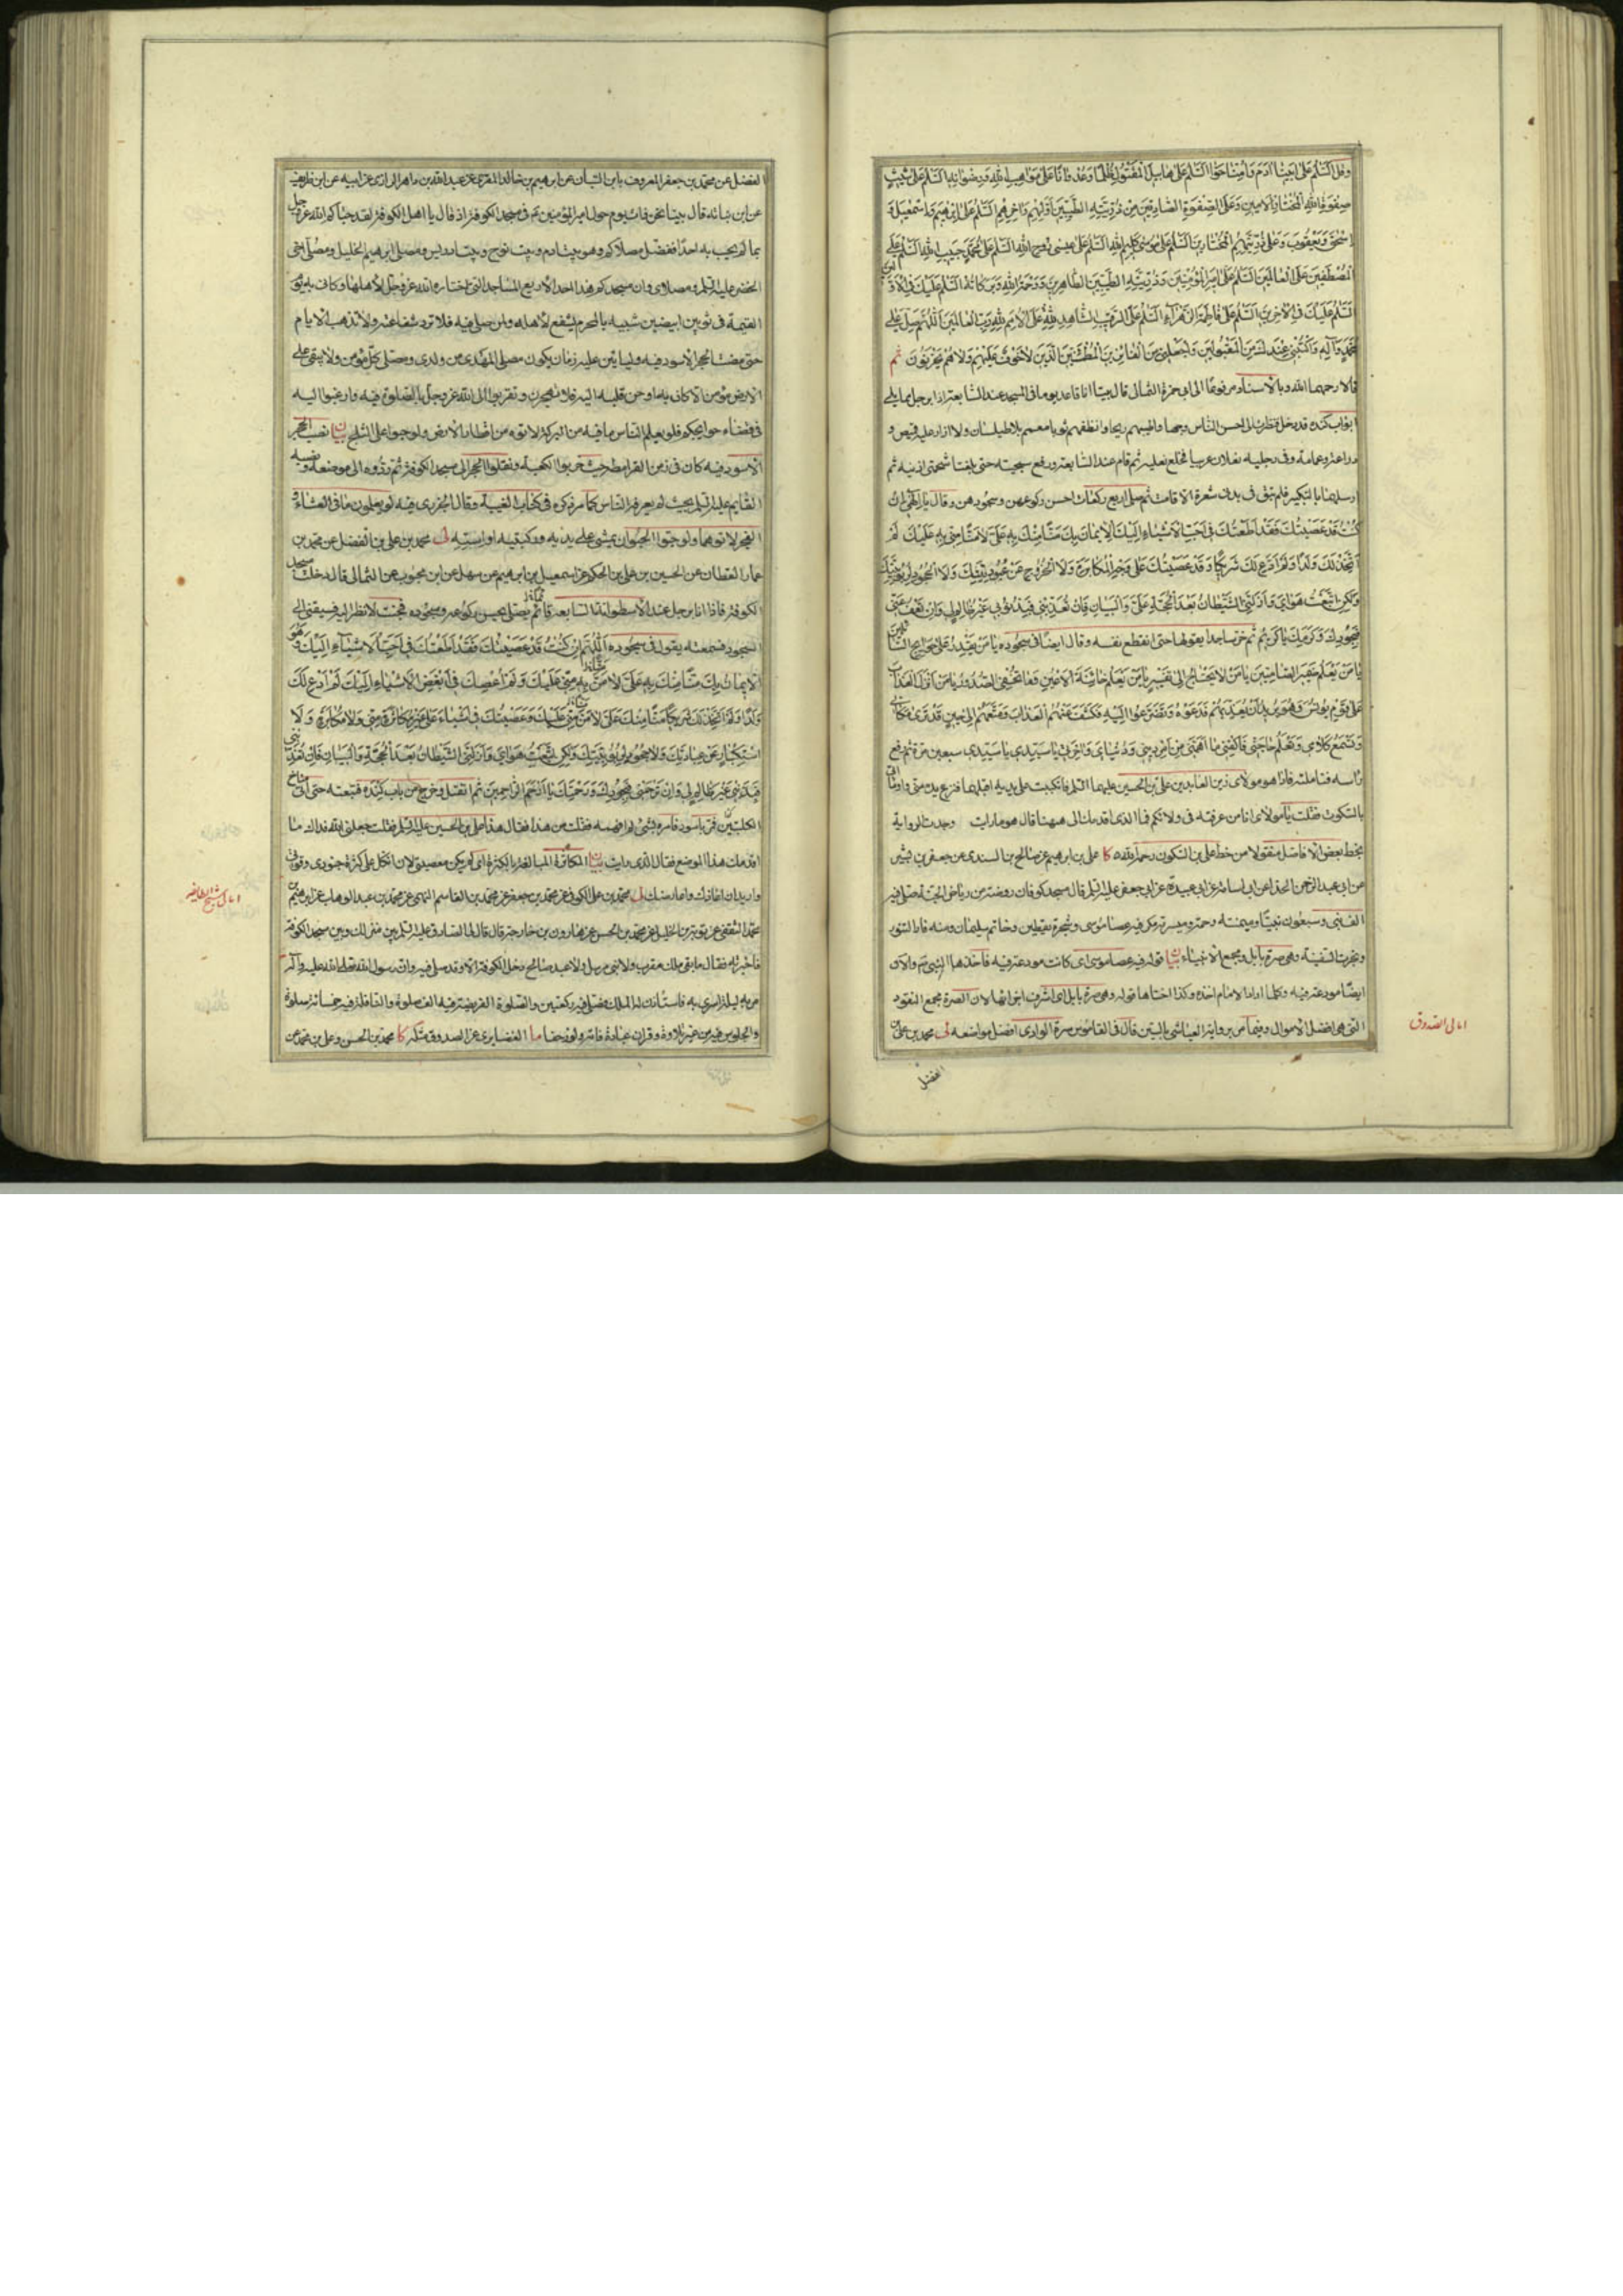 وقل السلام على ابينا آدم وامنا حواء السلام على هابيل المقتول ظلما وعدوانا على مواهب الله ورضوانه السلام على شيث
صفوة الله المختار الامين وعلى الصفوة الصادقين من ذريته الطيبين اولهم واخرهم السلام على ابرهيم واسمعيل و
اسحق ويعقوب وعلى ذريتهم المختارين السلام على موسى كليم الله السلام على عيسى روح الله السلام على محمد حبيب الله السلام على
المصطفين على العالمين السلام على امير المؤمنين وذريته الطيبين الطاهرين ورحمة الله وبركاته السلام عليك في الاولين
السلام عليك في الآخرين السلام على فاطمة الزهراء السلام على الرقيب الشاهد لله على الامم لله رب العالمين اللهم صل على
محمد وآله واكتبني عندك من المقبولين واجعلني من الفائزين المطمئنين الذين لا خوف عليهم ولا هم يحزنون ثم
قالا رحمهما الله وبالاسناد مرفوعا الى ابي حمزة الثمالي قال بينا انا قاعد يوما في المسجد عند السابعة اذا برجل مما يلي
ابواب كندة قد دخل فنظرت الى احسن الناس وجها واطيبهم ريحا وانظفهم ثوبا معمم بلا طيلسان ولا ازار عليه قميص و
دراعة وعمامة وفي رجليه نعلان عربيان فخلع نعليه ثم قام عند السابعة ورفع مسبحتيه حتى بلغتا شحمتي اذنيه ثم
ارسلهما بالتكبير فلم تبق في بدني شعرة الا قامت ثم صلى اربع ركعات احسن ركوعهن وسجودهن وقال الهي ان
كنت قد عصيتك فقد اطعتك في احب الاشياء اليك الايمان بك منا منك به علي لا منا مني به عليك لم
اتخذ لك ولدا ولم ادع لك شريكا وقد عصيتك على غير وجه المكابرة ولا الخروج عن عبوديتك ولا الجحود لربوبيتك
ولكن اتبعت هواي وازلني الشيطان بعد الحجة علي والبيان فان تعذبني فبذنوبي غير ظالم لي وان تعف عني
فبجودك وكرمك يا كريم ثم خر ساجدا يقولها حتى انقطع نفسه وقال ايضا في سجوده يا من يقدر على حوائج السائلين
يا من يعلم ضمير الصامتين يا من لا يحتاج الى تفسير يا من يعلم خائنة الاعين وما تخفي الصدور يا من انزل العذاب
على قوم يونس وهو يريد ان يعذبهم فدعوه وتضرعوا اليه فكشف عنهم العذاب ومتعهم الى حين قد ترى مكاني
وتسمع كلامي وتعلم حاجتي فاكفني ما اهمني من امر ديني ودنياي وآخرتي يا سيدي يا سيدي سبعين مرة ثم رفع
راسه فتاملته فاذا هو مولاي زين العابدين علي بن الحسين عليهما السلام فانكببت على يديه اقبلهما فنزع يده مني واومأ الي
بالسكوت فقلت يا مولاي انا من عرفته في ولائكم فما الذي اقدمك الى ههنا قال هو ما رايت وجدت الرواية
بخط بعض الافاضل منقولا من خط علي بن السكون رحمه الله كا علي بن ابرهيم عن صالح بن السندي عن جعفر بن بشير
عن ابي عبد الرحمن الحذاء عن ابي اسامة عن ابي عبيدة عن ابي جعفر عليه السلام قال مسجد كوفان روضة من رياض الجنة صلى فيه
الف نبي وسبعون نبيا وميمنته رحمة وميسرته مكر فيه عصا موسى وشجرة يقطين وخاتم سليمان ومنه فار التنور
ونجرت السفينة وهي صرة بابل ومجمع الانبياء بيان قوله فيه عصا موسى اي كانت مودعة فيه فاخذها النبي ص والآن
ايضا مودعة فيه وكلما اراد الامام اخذه وكذا اختاها قوله وهي صرة بابل اي اشرف اجزائها لان الصرة مجمع النقود
التي هي افضل الاموال وفيما مر من رواية العياشي بالسين قال في القاموس سرة الوادي افضل مواضعه لى محمد بن علي بن
الفضل
امالى الصدوق
الفضل عن محمد بن جعفر المعروف بابن التبان عن ابرهيم بن خالد المقري عن عبد الله بن داهر الرازي عن ابيه عن ابن طريف
عن ابن نباته قال بينا نحن ذات يوم حول امير المؤمنين ع في مسجد الكوفة اذ قال يا اهل الكوفة لقد حباكم الله عز وجل
بما لم يحب به احدا ففضل مصلاكم وهو بيت آدم وبيت نوح وبيت ادريس ومصلى ابرهيم الخليل ومصلى اخي
الخضر عليه السلم ومصلاي وان مسجدكم هذا احد الاربع المساجد التي اختاره الله عز وجل لأهلها وكاني به يوم
القيمة في ثوبين ابيضين شبيه بالمحرم يشفع لأهله ولمن صلى فيه فلا ترد شفاعته ولا تذهب الايام
حتى ينصب الحجر الاسود فيه ولياتين عليه زمان يكون مصلى المهدي من ولدي ومصلى كل مؤمن ولا يبقى على
الارض مؤمن الا كان به او حن قلبه اليه فلا تهجرن وتقربوا الى الله عز وجل بالصلوة فيه وارغبوا اليه
في قضاء حوائجكم فلو يعلم الناس ما فيه من البركة لاتوه من اقطار الارض ولو حبوا على الثلج بيان نصب الحجر
الاسود فيه كان في زمن القرامطة حيث خربوا الكعبة ونقلوا الحجر الى مسجد الكوفة ثم ردوه الى موضعه ونصبه
القايم عليه السلم بحيث لم يعرفه الناس كما مر ذكره في كتاب الغيبة وقال الجزري فيه لو يعلمون ما في العشاء و
الفجر لاتوهما ولو حبوا الحبو ان يمشي على يديه وركبتيه او استه لى محمد بن علي بن الفضل عن محمد بن
عمار القطان عن الحسين بن علي بن الحكم عن اسمعيل بن ابرهيم عن سهل عن ابن محبوب عن الثمالي قال دخلت مسجد
الكوفة فاذا انا برجل عند الاسطوانة السابعة قائما يصلي يحسن ركوعه وسجوده فجئت لانظر اليه فسبقني الى
السجود فسمعته يقول في سجوده اللهم ان كنت قد عصيتك فقد اطعتك في احب الاشياء اليك وهو
الايمان بك منا منك به علي لا من به مني عليك ولم اعصك في ابغض الاشياء اليك لم ادع لك
ولدا ولم اتخذ لك شريكا منا منك علي لا من مني عليك وعصيتك في اشياء على غير مكاثرة مني ولا مكابرة ولا
استكبار عن عبادتك ولا جحود لربوبيتك ولكن اتبعت هواي وازلني الشيطان بعد الحجة والبيان فان تعذبني
فبذنبي غير ظالم لي وان ترحمني فبجودك ورحمتك يا ارحم الراحمين ثم انفتل وخرج من باب كندة فتبعته حتى اتى مناخ
الكلبيين فمر باسود فامره بشئ لم افهمه فقلت من هذا فقال هذا علي بن الحسين عليه السلم فقلت جعلني الله فداك ما
اقدمك هذا الموضع فقال الذي رايت بيان المكاثرة المبالغة بالكثرة اي لم يكن معصيتي لان اتكل على كثرة جنودي وقوتي
واريد ان اعازك واعارضك لى محمد بن علي الكوفي عن محمد بن جعفر عن محمد بن القاسم النهمي عن محمد بن عبد الوهاب عن ابرهيم بن
محمد الثقفي عن توبة بن الخليل عن محمد بن الحسن عن هارون بن خارجة قال قال لي الصادق عليه السلم كم بين منزلك وبين مسجد الكوفة
فاخبرته فقال ما بقي ملك مقرب ولا نبي مرسل ولا عبد صالح دخل الكوفة الا وقد صلى فيه وان رسول الله صلى الله عليه وآله
مر به ليلة اسري به فاستاذن له الملك فصلى فيه ركعتين والصلوة الفريضة فيه الف صلوة والنافلة فيه خمسمائة صلوة
والجلوس فيه من غير تلاوة قرآن عبادة فاته ولو زحفا ما الغضايري عن الصدوق مثله كا محمد بن الحسن وعلي بن محمد عن
امالى الشيخ الطائفة